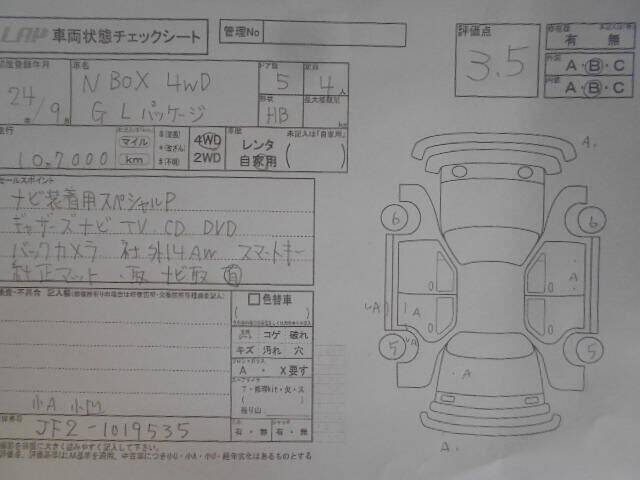 車両状態チェックシート
管理No
評価点
3.5
修復歴
有 無
外装
A・B・C
内装
A・B・C
車名
N BOX 4WD
G Lパッケージ
ドア数
5
定員
4人
24年/9月
形状
HB
最大積載量
kg
走行
10.7000
マイル
km
4WD
2WD
車歴
未記入は「自家用」
レンタ
自家用
セールスポイント
ナビ装着用スペシャルP
ギャザーズナビ TV CD DVD
バックカメラ 社外14AW スマートキー
純正マット ・取 ナビ取 有
色替車
コゲ 破れ
キズ 汚れ 穴
A ・ X要す
残り山
有・無 有・無
小A 小凹
JF2-1019535
A.
6
6
A
A
A
A
5
5
A
A.